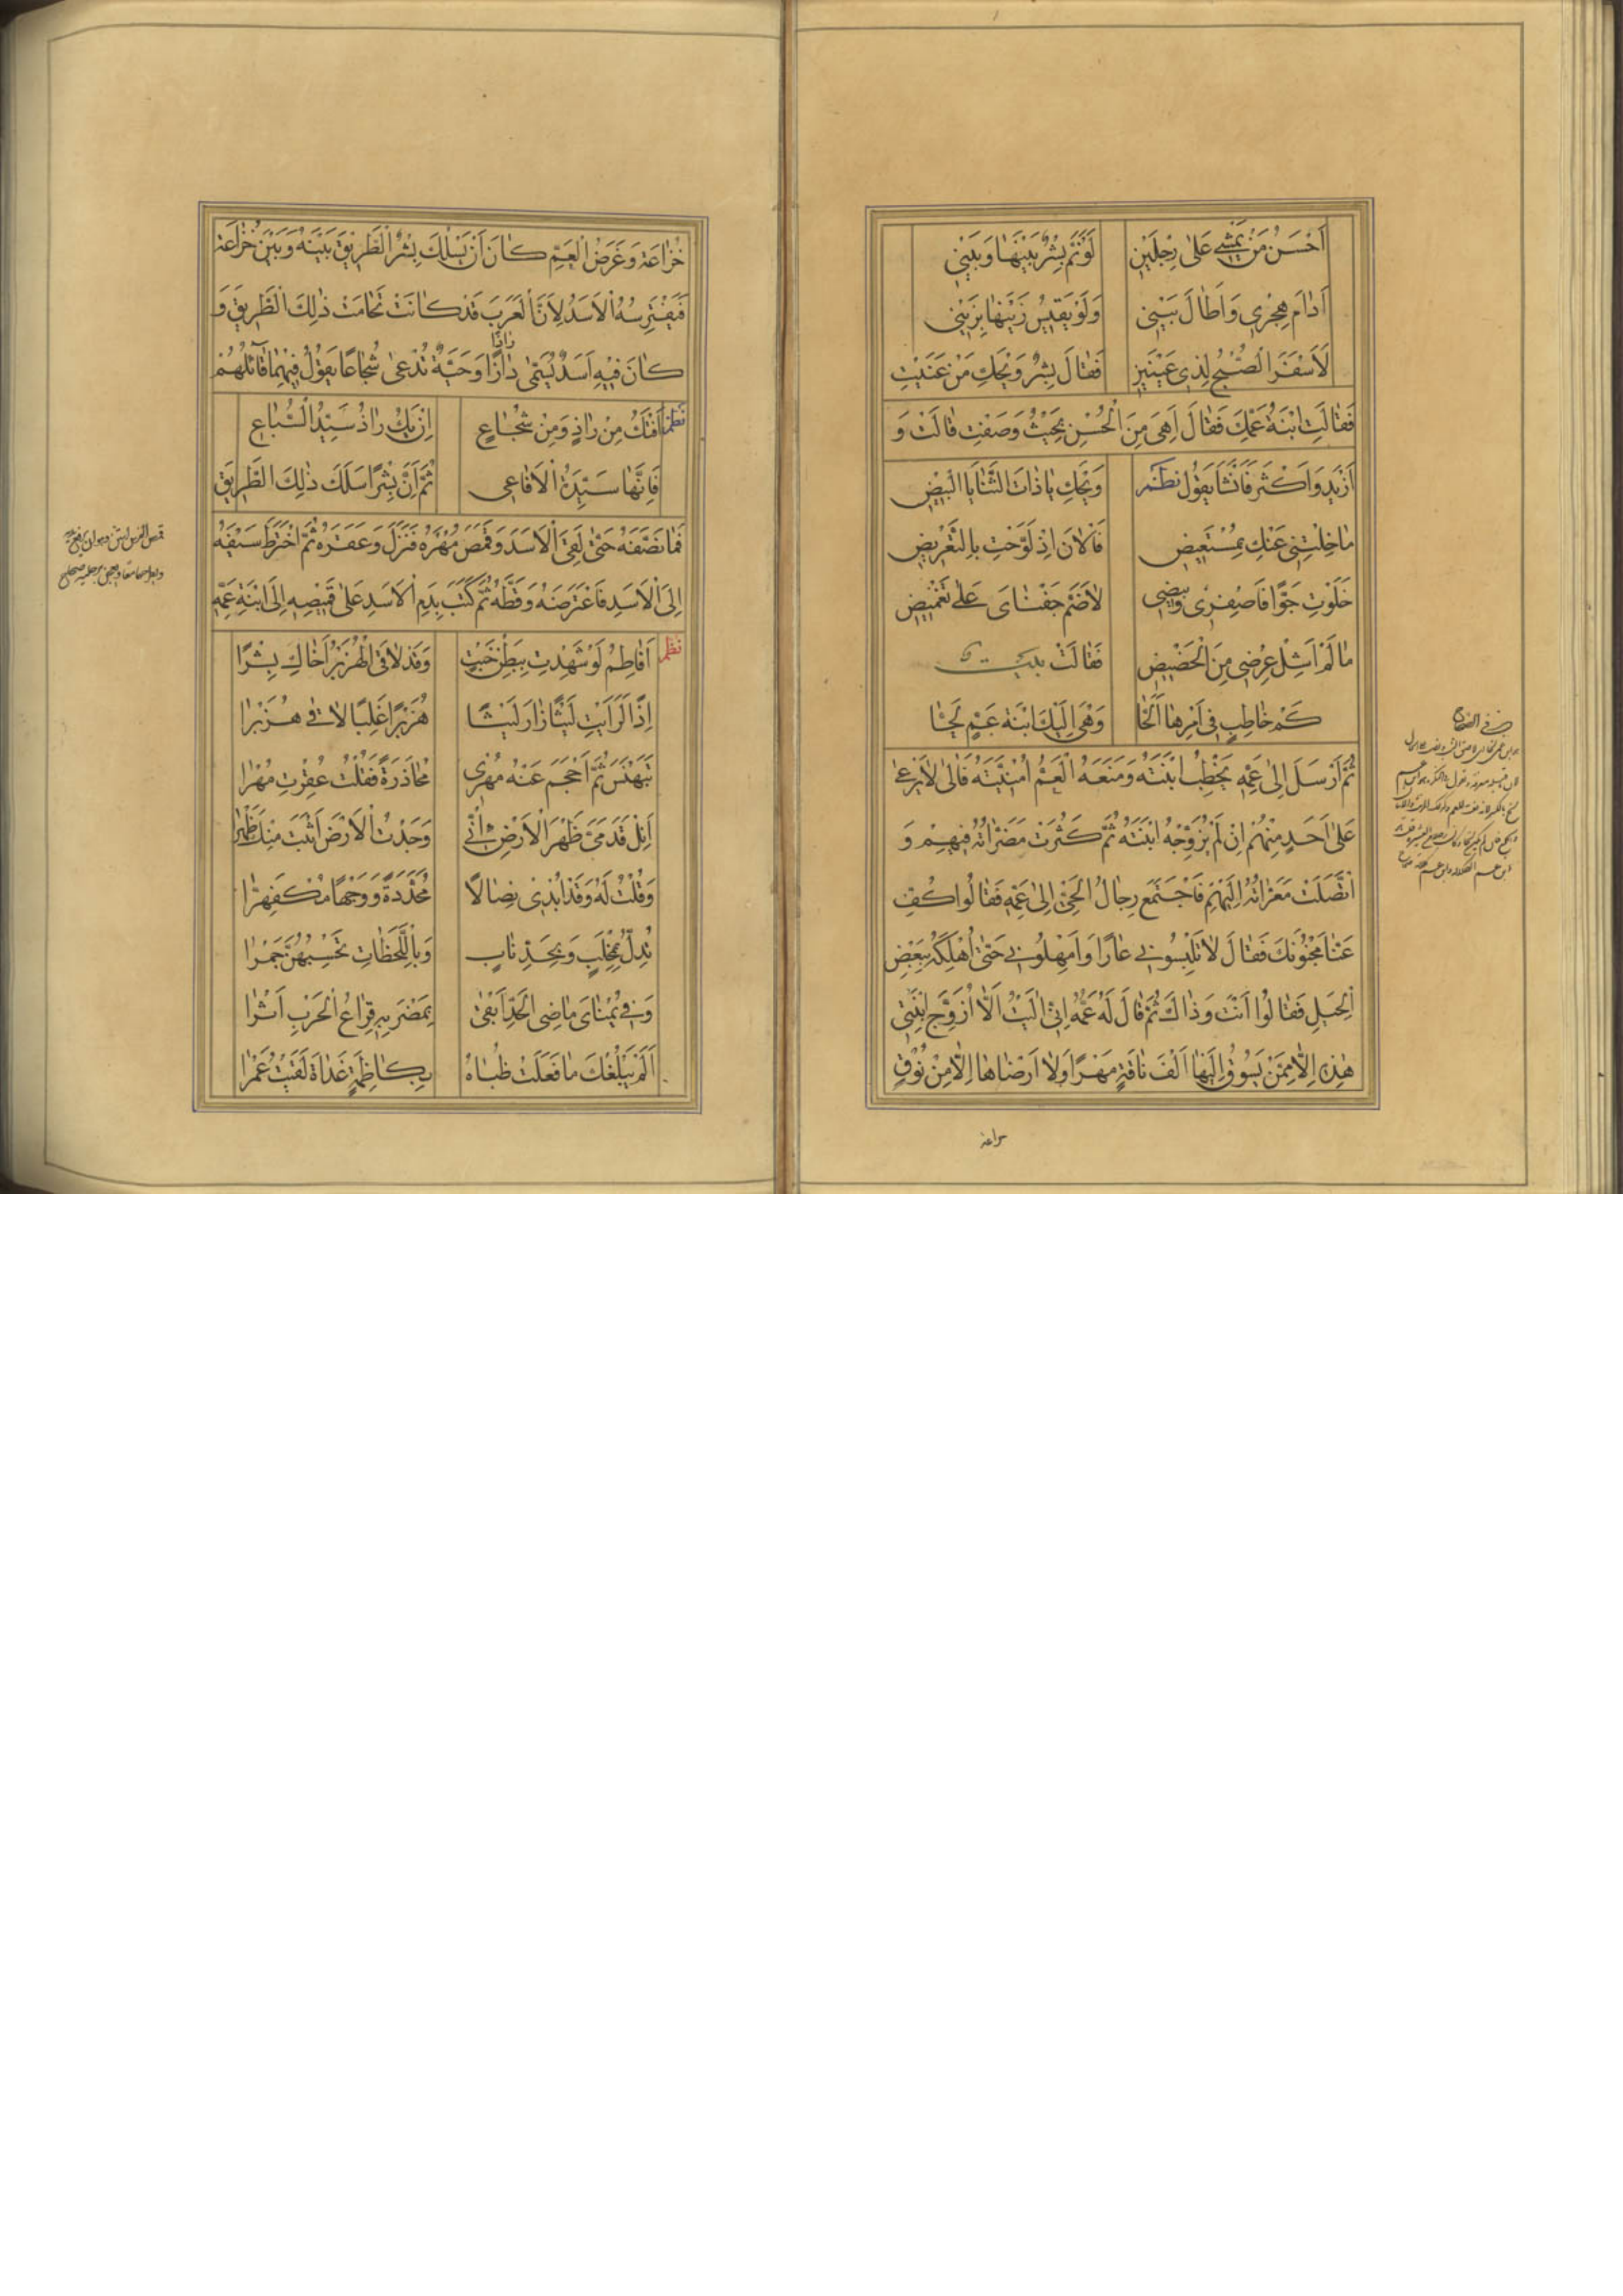 اَحْسَنُ مَنْ يَمْشِي عَلٰى رِجْلَيْنِ لَوْ ضَمَّ بِشْرٌ بَيْنَهَا وَبَيْنِي
اَدَامَ هِجْرِي وَاَطَالَ بَيْنِي وَلَوْ يَقِيسُ زَيْنَهَا بِزَيْنِي
لَاَسْفَرَ الصُّبْحُ لِذِي عَيْنَيْنِ فَقَالَ بِشْرٌ وَيْحَكِ مَنْ عَنَيْتِ
فَقَالَتِ ابْنَةُ عَمِّكَ فَقَالَ اَهِيَ مِنَ الْحُسْنِ بِحَيْثُ وَصَفْتِ قَالَتْ وَ
اَزْيَدَ وَاَكْثَرَ فَاَنْشَأَ يَقُولُ نظم وَيْحَكِ يَا ذَاتَ الثَّنَايَا الْبِيضِ
مَا خِلْتِنِي عَنْكِ بِمُسْتَعِيضِ فَالْاٰنَ اِذْ لَوَّحْتِ بِالتَّعْرِيضِ
خَلَوْتِ جَوًّا فَاصْفِرِي وَبِيضِي لَا ضُمَّ جَفْنَايَ عَلٰى تَغْمِيضِ
مَا لَمْ اَشِلْ عِرْضِي مِنَ الْحَضِيضِ فَقَالَتْ بيت
كَمْ خَاطِبٍ فِي اَمْرِهَا اَلَحَّا وَهْيَ اِلَيْكَ ابْنَةُ عَمٍّ لَحَّا
ثُمَّ اَرْسَلَ اِلٰى عَمِّهِ يَخْطِبُ ابْنَتَهُ وَمَنَعَهُ الْعَمُّ اُمْنِيَّتَهُ فَاٰلٰى لَا يَرْعٰى
عَلٰى اَحَدٍ مِنْهُمْ اِنْ لَمْ يُزَوِّجْهُ ابْنَتَهُ ثُمَّ كَثُرَتْ مَضَرَّاتُهُ فِيهِمْ وَ
اتَّصَلَتْ مَعَرَّاتُهُ اِلَيْهِمْ فَاجْتَمَعَ رِجَالُ الْحَيِّ اِلٰى عَمِّهِ فَقَالُوا كُفَّ
عَنَّا مَجْنُونَكَ فَقَالَ لَا تُلْبِسُونِي عَارًا وَاَمْهِلُونِي حَتّٰى اُهْلِكَهُ بِبَعْضِ
الْحِيَلِ فَقَالُوا اَنْتَ وَذَاكَ ثُمَّ قَالَ لَهُ عَمُّهُ اِنِّي اٰلَيْتُ اَلَّا اُزَوِّجَ ابْنَتِي
هٰذِهِ اِلَّا مِمَّنْ يَسُوقُ اِلَيْهَا اَلْفَ نَاقَةٍ مَهْرًا وَلَا اَرْضَاهَا اِلَّا مِنْ نُوقِ
خُزَاعَةَ وَغَرَضُ الْعَمِّ كَانَ اَنْ يَسْلُكَ بِشْرٌ الطَّرِيقَ بَيْنَهُ وَبَيْنَ خُزَاعَةَ
فَيَفْتَرِسُهُ الْاَسَدُ لِاَنَّ الْعَرَبَ قَدْ كَانَتْ تَحَامَتْ ذٰلِكَ الطَّرِيقَ وَ
كَانَ فِيهِ اَسَدٌ يُسَمّٰى دَاذًا وَحَيَّةٌ تُدْعٰى شُجَاعًا يَقُولُ فِيهِمَا قَائِلُهُمْ
نظم اَفْتَكُ مِنْ دَاذٍ وَمِنْ شُجَاعِ اِنْ يَكُ دَاذٌ سَيِّدُ السِّبَاعِ
فَاِنَّهَا سَيِّدَةُ الْاَفَاعِي ثُمَّ اِنَّ بِشْرًا سَلَكَ ذٰلِكَ الطَّرِيقَ
فَمَا نَصَّفَهُ حَتّٰى لَقِيَ الْاَسَدَ وَقَمَصَ مُهْرُهُ فَنَزَلَ وَعَقَرَهُ ثُمَّ اخْتَرَطَ سَيْفَهُ
اِلَى الْاَسَدِ فَاعْتَرَضَهُ وَقَطَّهُ ثُمَّ كَتَبَ بِدَمِ الْاَسَدِ عَلٰى قَمِيصِهِ اِلَى ابْنَةِ عَمِّهِ
نظم اَفَاطِمُ لَوْ شَهِدْتِ بِبَطْنِ خَبْتٍ وَقَدْ لَاقَى الْهِزَبْرُ اَخَاكِ بِشْرًا
اِذًا لَرَاَيْتِ لَيْثًا زَارَ لَيْثًا هِزَبْرًا اَغْلَبًا لَاقٰى هِزَبْرَا
تَبَهْنَسَ ثُمَّ اَحْجَمَ عَنْهُ مُهْرِي مُحَاذَرَةً فَقُلْتُ عُقِرْتَ مُهْرَا
اَنِلْ قَدَمَيَّ ظَهْرَ الْاَرْضِ اِنِّي وَجَدْتُ الْاَرْضَ اَثْبَتَ مِنْكَ ظَهْرَا
وَقُلْتُ لَهُ وَقَدْ اَبْدٰى نِصَالًا مُحَدَّدَةً وَوَجْهًا مُكْفَهِرَّا
يُدِلُّ بِمِخْلَبٍ وَبِحَدِّ نَابٍ وَبِاللَّحَظَاتِ تَحْسِبُهُنَّ جَمْرَا
وَفِي يُمْنَايَ مَاضِي الْحَدِّ اَبْقٰى بِمَضْرِبِهِ قِرَاعُ الْحَرْبِ اَثْرَا
اَلَمْ يَبْلُغْكَ مَا فَعَلَتْ ظُبَاهُ بِكَاظِمَةٍ غَدَاةَ لَقِيتُ عَمْرَا